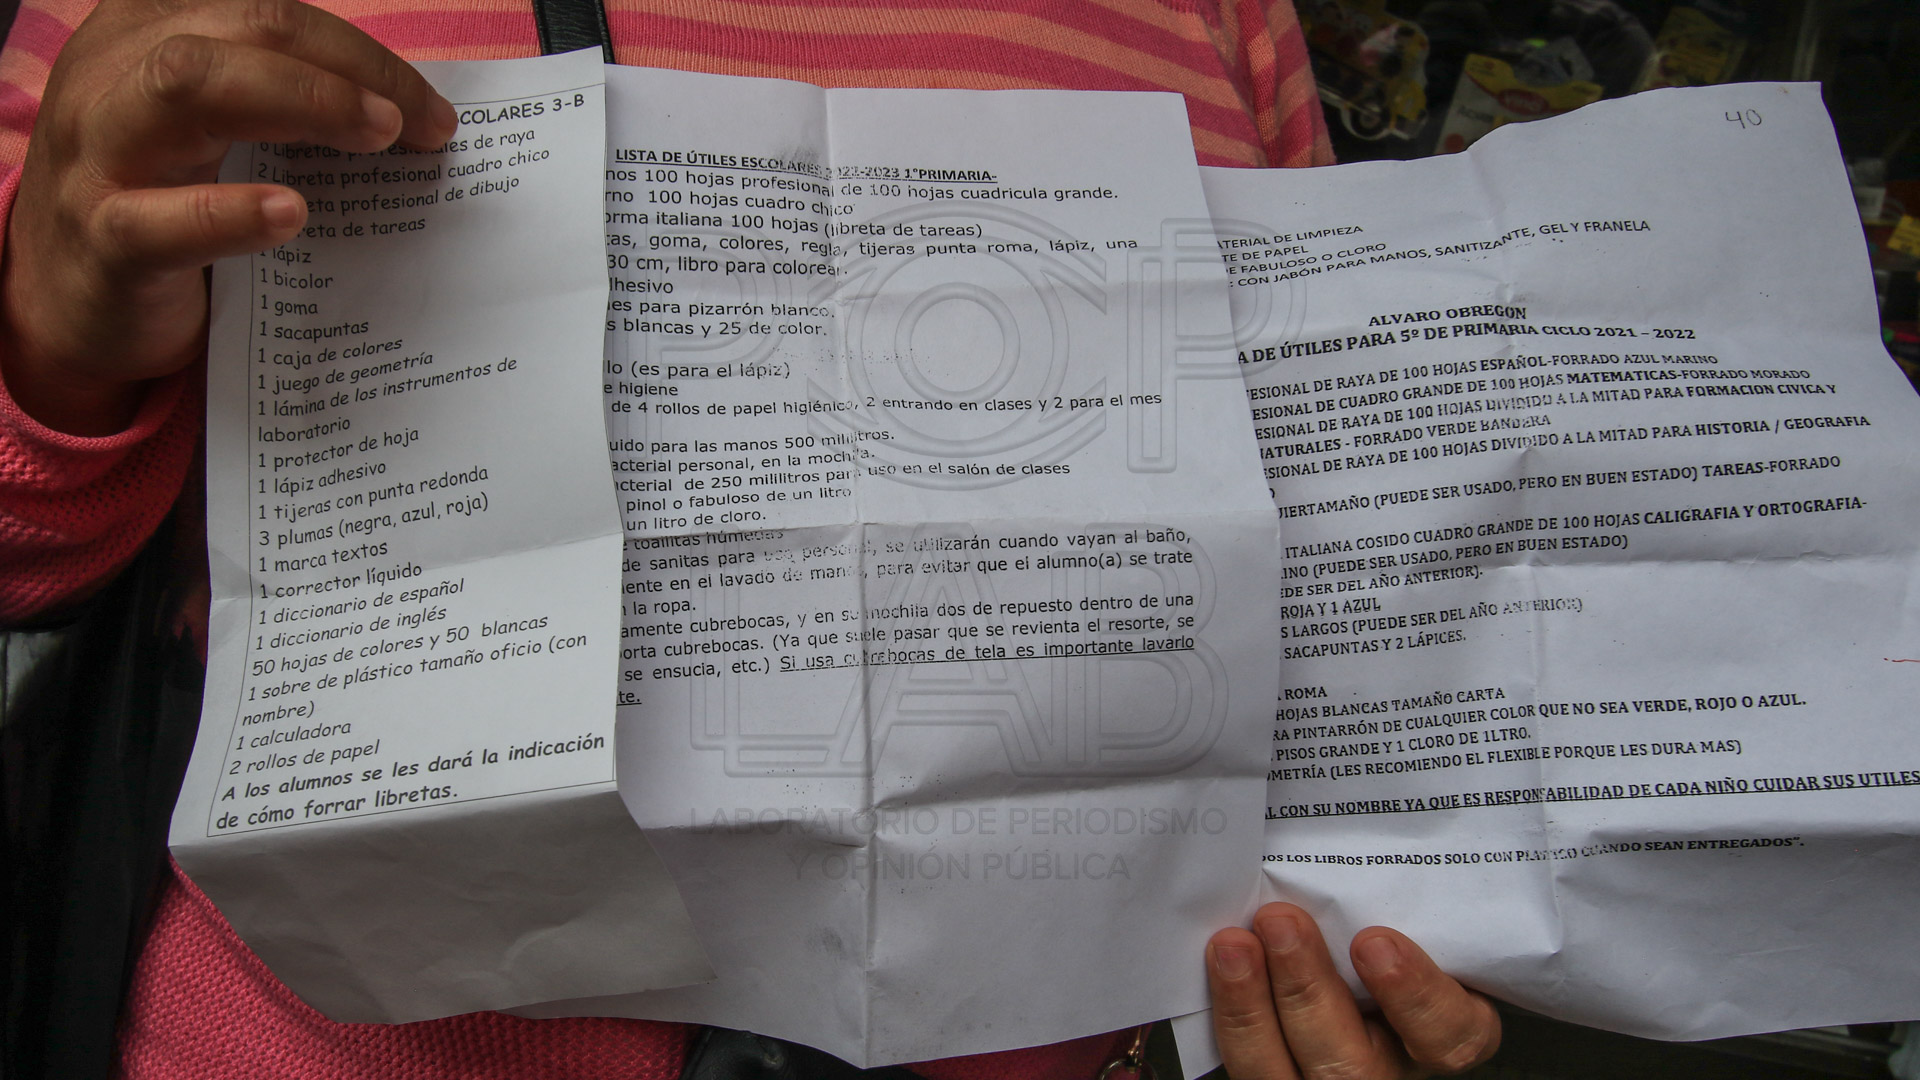 ESCOLARES 3-B
6 Libretas profesionales de raya
2 Libreta profesional cuadro chico
profesional de dibujo
de tareas
1 lápiz
1 bicolor
1 goma
1 sacapuntas
1 caja de colores
1 juego de geometría
1 lámina de los instrumentos de
laboratorio
1 protector de hoja
1 lápiz adhesivo
1 tijeras con punta redonda
3 plumas (negra, azul, roja)
1 marca textos
1 corrector líquido
1 diccionario de español
1 diccionario de inglés
50 hojas de colores y 50 blancas
1 sobre de plástico tamaño oficio (con
nombre)
1 calculadora
2 rollos de papel
A los alumnos se les dará la indicación
de cómo forrar libretas.
LISTA DE ÚTILES ESCOLARES 2022-2023 1°PRIMARIA-
nos 100 hojas profesional de 100 hojas cuadricula grande.
rno 100 hojas cuadro chico
orma italiana 100 hojas (libreta de tareas)
tas, goma, colores, regla, tijeras punta roma, lápiz, una
30 cm, libro para colorear.
dhesivo
es para pizarrón blanco.
s blancas y 25 de color.
lo (es para el lápiz)
e higiene
de 4 rollos de papel higiénico, 2 entrando en clases y 2 para el mes
uido para las manos 500 mililitros.
acterial personal, en la mochila.
cterial de 250 mililitros para uso en el salón de clases
pinol o fabuloso de un litro
un litro de cloro.
e toallitas húmedas
de sanitas para uso personal, se utilizarán cuando vayan al baño,
mente en el lavado de manos, para evitar que el alumno(a) se trate
n la ropa.
amente cubrebocas, y en su mochila dos de repuesto dentro de una
orta cubrebocas. (Ya que suele pasar que se revienta el resorte, se
se ensucia, etc.) Si usa cubrebocas de tela es importante lavarlo
te.
40
ATERIAL DE LIMPIEZA
TE DE PAPEL
E FABULOSO O CLORO
: CON JABÓN PARA MANOS, SANITIZANTE, GEL Y FRANELA
ALVARO OBREGON
A DE ÚTILES PARA 5º DE PRIMARIA CICLO 2021 – 2022
ESIONAL DE RAYA DE 100 HOJAS ESPAÑOL-FORRADO AZUL MARINO
ESIONAL DE CUADRO GRANDE DE 100 HOJAS MATEMATICAS-FORRADO MORADO
ESIONAL DE RAYA DE 100 HOJAS DIVIDIDO A LA MITAD PARA FORMACION CIVICA Y
NATURALES - FORRADO VERDE BANDERA
ESIONAL DE RAYA DE 100 HOJAS DIVIDIDO A LA MITAD PARA HISTORIA / GEOGRAFIA
O
UIERTAMAÑO (PUEDE SER USADO, PERO EN BUEN ESTADO) TAREAS-FORRADO
ITALIANA COSIDO CUADRO GRANDE DE 100 HOJAS CALIGRAFIA Y ORTOGRAFIA-
INO (PUEDE SER USADO, PERO EN BUEN ESTADO)
EDE SER DEL AÑO ANTERIOR).
ROJA Y 1 AZUL
S LARGOS (PUEDE SER DEL AÑO ANTERIOR)
SACAPUNTAS Y 2 LÁPICES.
ROMA
HOJAS BLANCAS TAMAÑO CARTA
RA PINTARRÓN DE CUALQUIER COLOR QUE NO SEA VERDE, ROJO O AZUL.
PISOS GRANDE Y 1 CLORO DE 1LTRO.
OMETRÍA (LES RECOMIENDO EL FLEXIBLE PORQUE LES DURA MAS)
AL CON SU NOMBRE YA QUE ES RESPONSABILIDAD DE CADA NIÑO CUIDAR SUS UTILES
DOS LOS LIBROS FORRADOS SOLO CON PLASTICO CUANDO SEAN ENTREGADOS".
POP
LAB
LABORATORIO DE PERIODISMO
Y OPINIÓN PÚBLICA